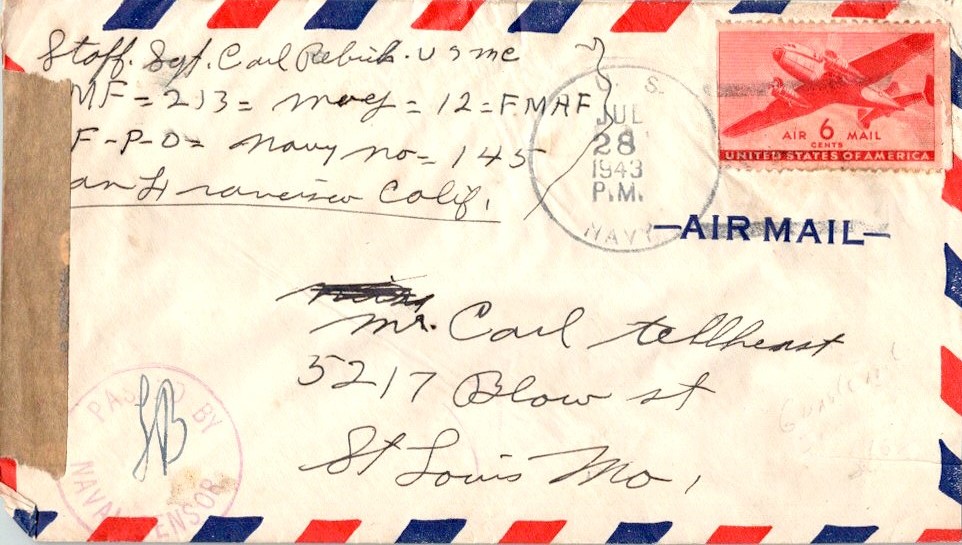 Staff. Sgt. Carl Rebich. U S M C
MF = 213 = = 12 = F.M.A.F
F - P - O = Navy no = 145
an Francisco Calif.
U. S.
JUL
28
1943
P.M.
NAVY
AIR 6 MAIL
CENTS
UNITED STATES OF AMERICA
—AIR MAIL—
Mr. Carl tellheast
5217 Blow st
St Louis Mo,
PASSED BY
LB
NAVAL CENSOR